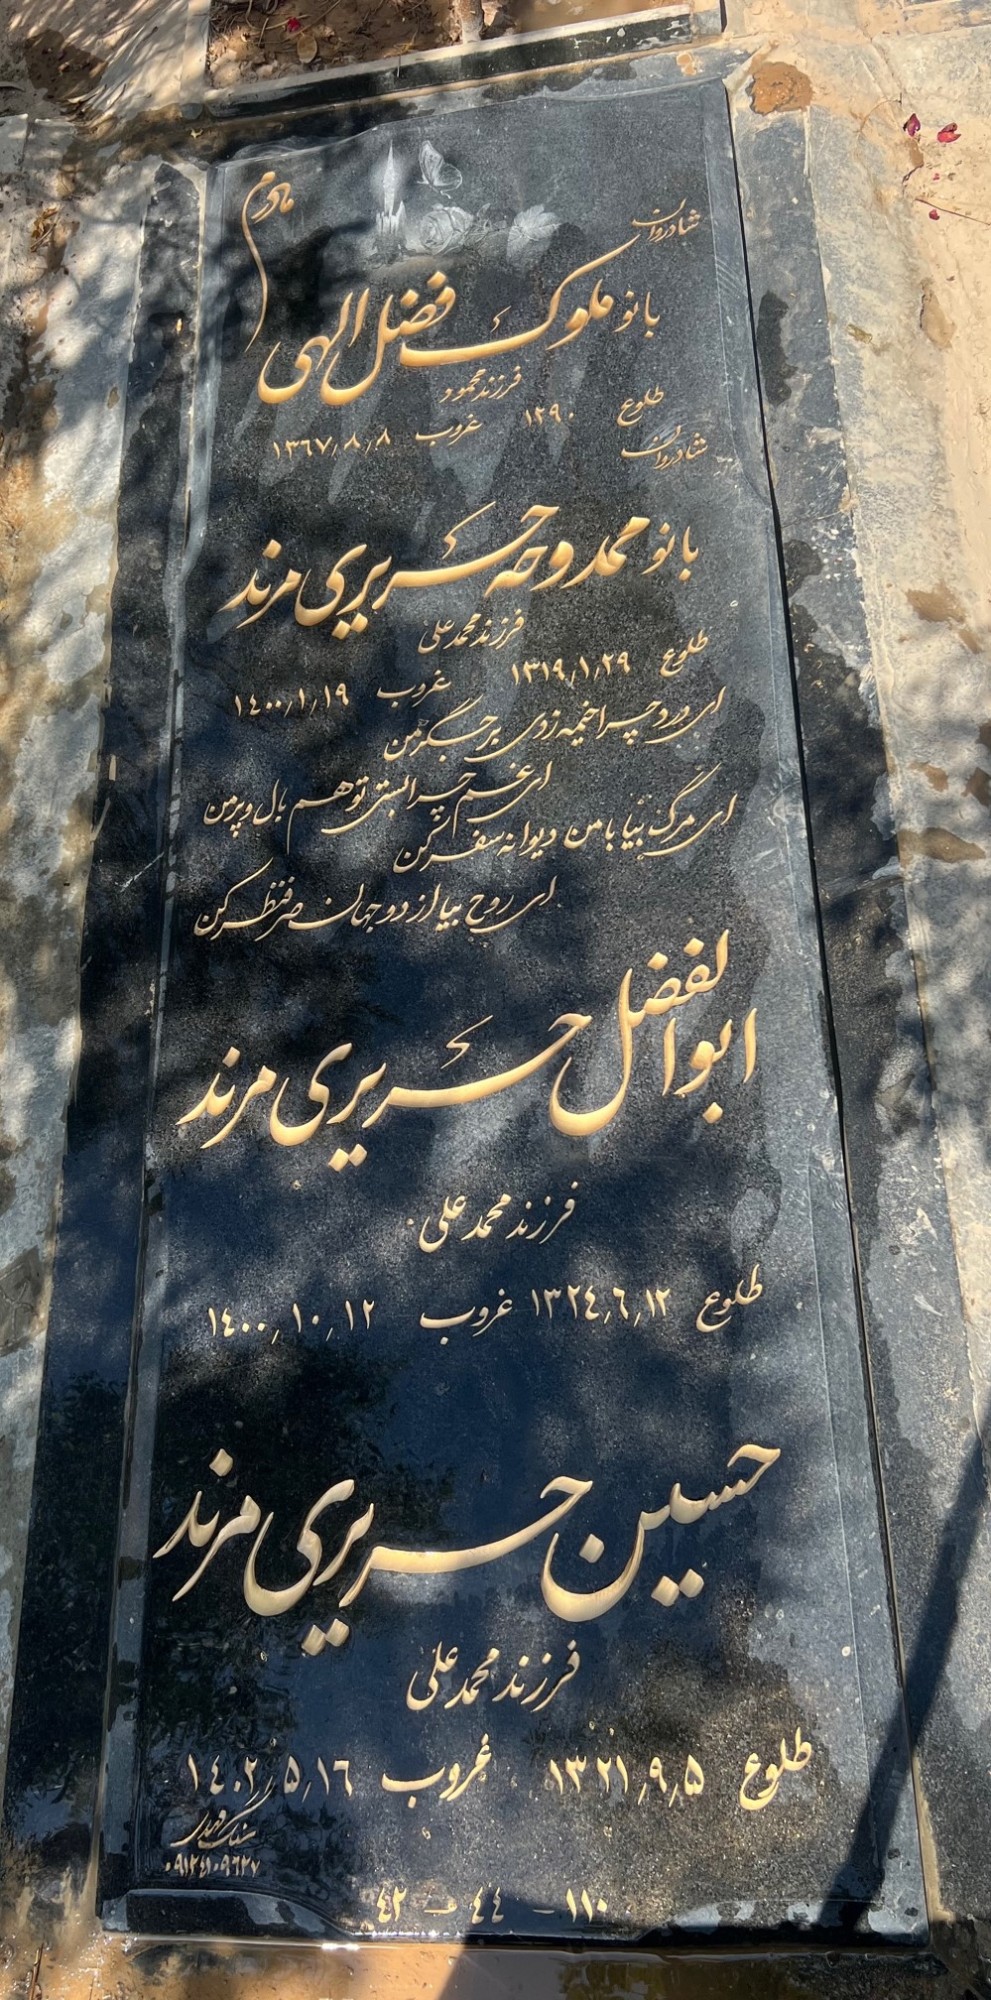 شادروان
مادرم
بانو ملوک فضل الهی
فرزند محمود
طلوع ۱۲۹۰ غروب ۱۳۶۷٫۸٫۸
شادروان
بانو ممدوحه حریری مرند
فرزند محمد علی
طلوع ۱۳۱۹٫۱٫۲۹ غروب ۱۴۰۰٫۱٫۱۹
ای درد چرا خیمه زدی بر جگر من
ای غم چرا بستی تو هم بال و پر من
ای مرگ بیا با من دیوانه سفر کن
ای روح بیا از دو جهان صرفنظر کن
ابوالفضل حریری مرند
فرزند محمد علی
طلوع ۱۳۲۴٫۶٫۱۲ غروب ۱۴۰۰٫۱۰٫۱۲
حسین حریری مرند
فرزند محمد علی
طلوع ۱۳۲۱٫۹٫۵ غروب ۱۴۰۲٫۵٫۱۶
سنگ مهدی
۰۹۱۲۴۱۰۹۶۲۷
۱۱۰ - ۴۴ - ۴۲